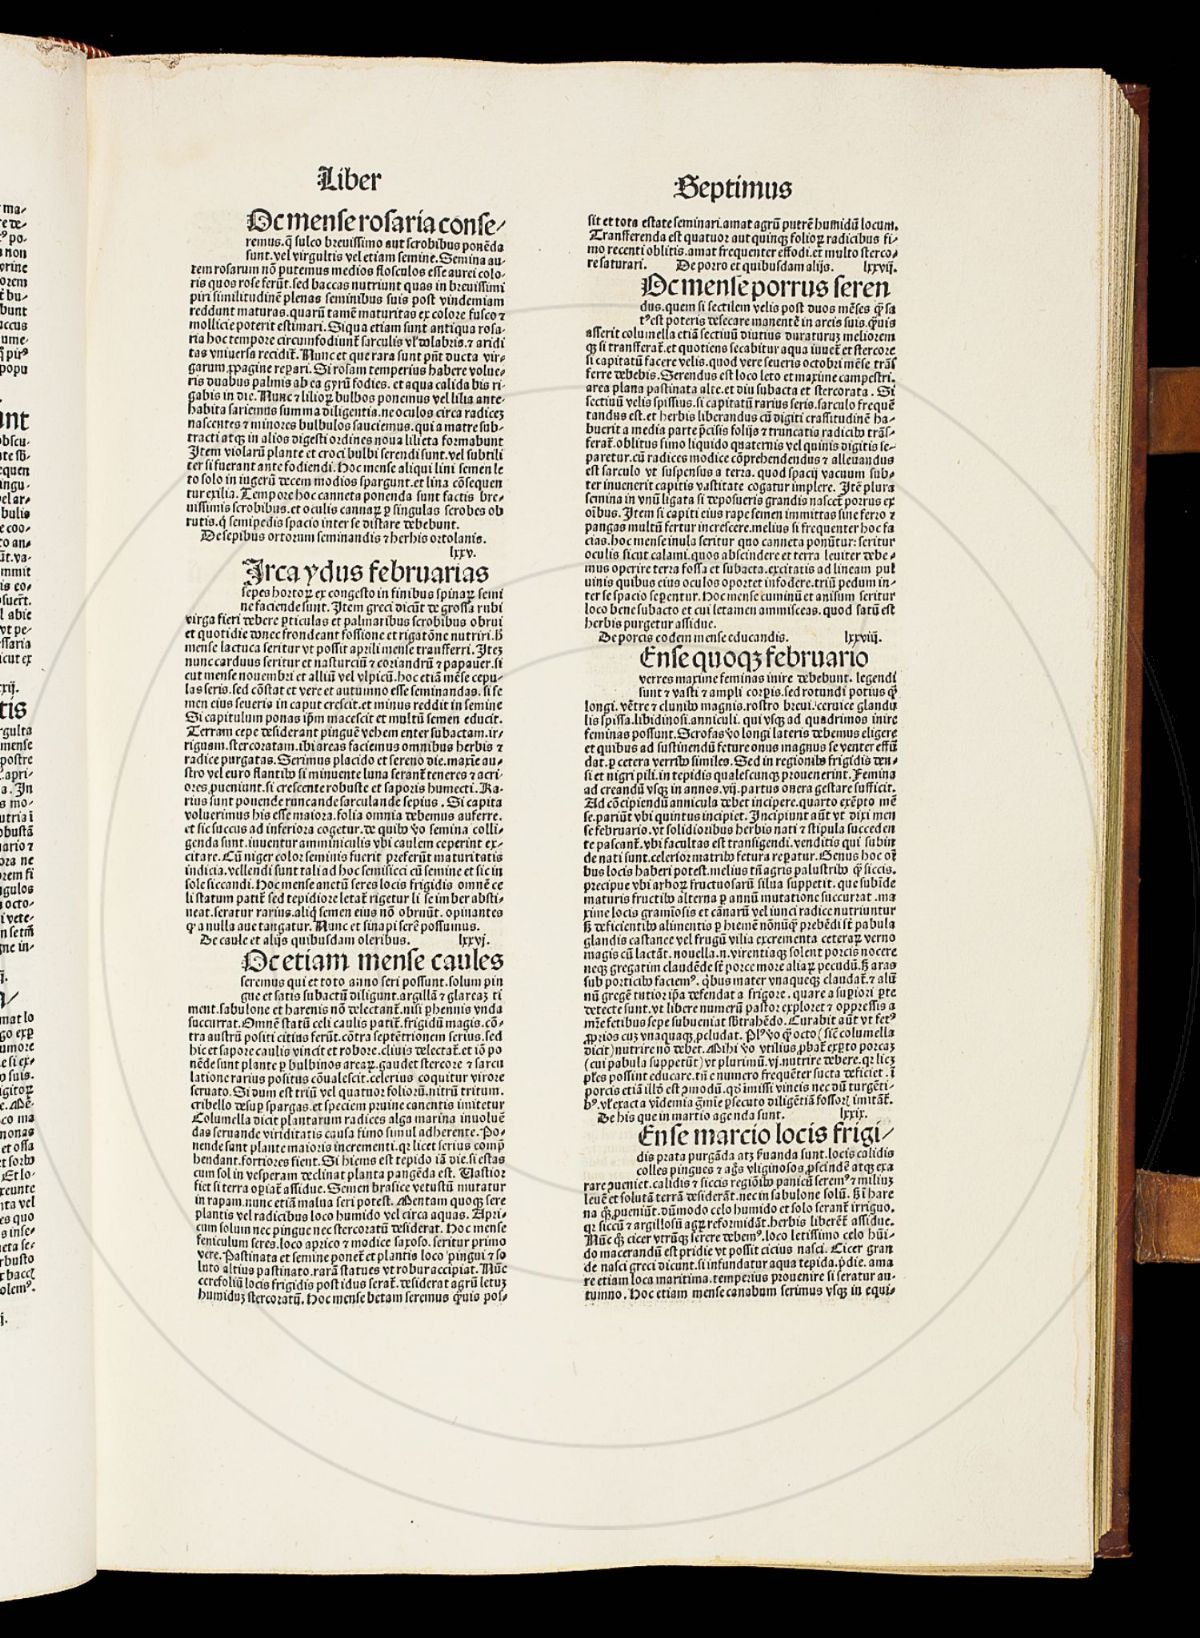 Liber
Oc mense rosaria conse⸗
remus. q̄ sulco breuissimo aut scrobibus ponēda
sunt. vel virgultis vel etiam semine. Semina au⸗
tem rosarum nō putemus medios flosculos esse aurei colo⸗
ris quos rose ferūt. sed baccas nutriunt quas in breuissimi
piri similitudinē plenas seminibus suis post vindemiam
reddunt maturas. quarū tamē maturitas ex colore fusco ⁊
mollicie poterit estimari. Siqua etiam sunt antiqua rosa⸗
ria hoc tempore circumfodiunt̄ sarculis vl̓ dolabris. ⁊ aridi
tas vniuersa recidit̄. Nunc et que rara sunt pn̄t ducta vir⸗
garum ꝓpagine repari. Si rosam temperius habere volue⸗
ris duabus palmis ab ea gyrū fodies. et aqua calida bis ri⸗
gabis in die. Nunc ⁊ lilioꝝ bulbos ponemus vel lilia ante⸗
habita sariemus summa diligentis. ne oculos circa radiceꝫ
nascentes ⁊ minores bulbulos sauciemus. qui a matre sub⸗
tracti atqꝫ in alios digesti ordines noua lilieta formabunt
Item violarū plante et croci bulbi serendi sunt. vel subtili
ter si fuerant ante fodiendi. Hoc mense aliqui lini semen le
to solo in iugerū decem modios spargunt. et lina cōsequen
tur exilia. Tempore hoc canneta ponenda sunt factis bre⸗
uissimis scrobibus. et oculis cannaꝝ ꝑ singulas scrobes ob
rutis. q̄ semipedis spacio inter se distare debebunt.
De sepibus ortorum seminandis ⁊ herbis ortolanis.
lxxv.
Irca ydus februarias
sepes hortoꝝ ex congesto in finibus spinaꝝ semi
ne faciende sunt. Item greci dicūt de grossa rubi
virga fieri debere ꝑticulas et palmaribus scrobibus obrui
et quotidie donec frondeant fossione et rigatōne nutriri. h̄
mense lactuca seritur vt possit aprili mense transferri. Iteꝫ
nunc carduus seritur et nasturciū ⁊ coriandrū ⁊ papauer. si
cut mense nouembri et alliū vel vlpicū. hoc etiā mēse cepu⸗
las seris. sed cōstat et vere et autumno esse seminandas. si se
men eius seueris in caput crescit. et minus reddit in semine
Si capitulum ponas ip̄m macescit et multū semen educit.
Terram cepe desiderant pinguē vehementer subactam. ir⸗
riguam. stercoratam. ibi areas faciemus omnibus herbis ⁊
radice purgatas. Serimus placido et sereno die. maxīe au⸗
stro vel euro flantibꝰ si minuente luna serant̄ teneres ⁊ acri⸗
ores ꝓueniunt. si crescente robuste et saporis humecti. Ra⸗
rius sunt ponende runcande sarculande sepius. Si capita
voluerimus his esse maiora. folia omnia debemus auferre.
et sic succus ad inferiora cogetur. de quibꝰ ꝟo semina colli⸗
genda sunt. iuuentur amminiculis vbi caulem ceperint ex⸗
citare. Cū niger color seminis fuerit preferūt maturitatis
indicia. vellendi sunt tali ad hoc semisicci cū semine et sic in
sole siccandi. Hoc mense anetū seres locis frigidis omnē ce
li statum patit̄ sed tepidiore letat̄ rigetur li se imber absti⸗
neat. seratur rarius. aliqͥ semen eius nō obruūt. opinantes
qͦ a nulla aue tangatur. Nunc et sinapi serē possumus.
De caule et alijs quibusdam oleribus. lxxvj.
Oc etiam mense caules
seremus qui et toto anno seri possunt. solum pin
gue et satis subactū diligunt. argillā ⁊ glareaꝫ ti
ment. sabulone et harenis nō delectant̄. nisi ꝑhennis vnda
succurrat. Omnē statū celi caulis patit̄. frigidū magis. cō⸗
tra austrū positi citius ferūt. cōtra septētrionem serius. sed
hic et sapore caulis vincit et robore. cliuis delectat̄. et iō po
nēde sunt plante ꝑ bulbinos areaꝝ. gaudet stercore ⁊ sarcu
latione rarius positus cōualescit. celerius coquitur virore
seruato. Si dum est triū vel quatuor folioꝝ. nitrū tritum.
cribello desuꝑ spargas. et speciem pruine canentis imitetur
Columella dicit plantarum radices alga marina inuoluē
das seruande viriditatis causa fimo simul adherente. Po⸗
nende sunt plante maioris incrementi. qr̄ licet serius comp̄
hendant. fortiores fient. Si hiems est tepido iā die. si estas
cum sol in vesperam declinat planta pangēda est. Vastior
fiet si terra oꝑiat̄ assidue. Semen brasice vetustū mutatur
in rapam. nunc etiā malua seri potest. Mentam quoqꝫ sere
plantis vel radicibus loco humido vel circa aquas. Apri⸗
cum solum nec pingue nec stercoratū desiderat. Hoc mense
feniculum seres. loco aprico ⁊ modice saxoso. seritur primo
vere. Pastinata et semine ponet̄ et plantis loco pingui ⁊ so
luto altius pastinato. rarā statues vt robur accipiat. Nūc
cerefoliū locis frigidis post idus serat̄. desiderat agrū letuꝫ
humiduꝫ stercoratū. Hoc mense betam seremus qͣuis pos⸗
Septimus
sit et tota estate seminari. amat agrū putrē humidū locum.
Transferenda est quatuor aut quinqꝫ folioꝝ radicibus fi⸗
mo recenti oblitis. amat frequenter effodi. et multo sterco⸗
re saturari. De porro et quibusdam alijs. lxxvij.
Oc mense porrus seren
dus. quem si sectilem velis post duos mēses qͣ sa
tꝰ est poteris desecare manentē in arcis suis. qͣuis
asserit columella etiā sectiuū diutius duraturuꝫ meliorem
qꝫ si transferat̄. et quotiens secabitur aqua iuuet̄ et stercore
si capitatū facere velis. quod vere seueris octobri mēse trās
ferre debebis. Serendus est loco leto et maxime campestri.
area plana pastinata alte. et diu subacta et stercorata. Si
sectiuū velis spissius. si capitatū rarius seris. sarculo frequē
tandus est. et herbis liberandus cū digiti crassitudinē ha⸗
buerit a media parte p̄cisis folijs ⁊ truncatis radicibꝰ trās⸗
ferat̄. oblitus simo liquido quaternis vel quinis digitis se⸗
paretur. cū radices modice cōprehendendus ⁊ alleuandus
est sarculo vt suspensus a terra. quod spacij vacuum sub⸗
ter inuenerit capitis vastitate cogatur implere. Itē plura
semina in vnū ligata si deposueris grandis nascet̄ porrus ex
oībus. Item si capiti eius rape semen immittas sine ferro ⁊
pangas multū fertur increscere. melius si frequenter hoc fa
cias. hoc mense inula seritur quo canneta ponūtur: seritur
oculis sicut calami. quos abscindere et terra leuiter debe⸗
mus operire terra fossa et subacta. excitatis ad lineam pul
uinis quibus eius oculos oportet infodere. triū pedum in⸗
ter se spacio seꝑentur. Hoc mense cuminū et anisum seritur
loco bene subacto et cui letamen ammisceas. quod satū est
herbis purgetur assidue.
De porcis eodem mense educandis. lxxviij.
Ense quoqꝫ februario
verres maxime feminas inire debebunt. legendi
sunt ⁊ vasti ⁊ ampli corꝑis. sed rotundi potius qͣ
longi. vētre ⁊ clunibꝰ magnis. rostro breui. ceruice glandu
lis spissa. libidinosi. anniculi. qui vsqꝫ ad quadrimos inire
feminas possunt. Scrofas ꝟo longi lateris debemus eligere
et quibus ad sustinendū feture onus magnus se venter effū
dat. ꝑ cetera verribꝰ similes. Sed in regionibꝰ frigidis den⸗
si et nigri pili. in tepidis qualescunqꝫ prouenerint. Femina
ad creandū vsqꝫ in annos. vij. partus onera gestare sufficit.
Ad cōcipiendū annicula debet incipere. quarto exēpto mē
se. pariūt vbi quintus incipiet. Incipiunt aūt vt dixi men
se februario. vt solidioribus herbis nati ⁊ stipula succeden
te pascant̄. vbi facultas est transigendi. venditis qui subin
de nati sunt. celerior matribꝰ fetura reꝑatur. Genus hoc oī
bus locis haberi potest. melius tn̄ agris palustribꝰ qͣ siccis.
precipue vbi arboꝝ fructuosarū silua suppetit. que subīde
maturis fructibꝰ alterna ꝑ annū mutatione succurrat. ma
xime locis gramīosis et cānarū vel iunci radice nutriuntur
sꝫ deficientibꝰ alimentis ꝑ hiemē nōnūqͣ prebēdi st̄ pabula
glandis castanee vel frugū vilia excrementa ceteraꝝ verno
magis cū lactāt. nouella. n. virentiaqꝫ solent porcis nocere
neqꝫ gregatim claudēde st̄ porce more aliaꝝ pecudū. sꝫ aras
sub porticibꝰ faciemꝰ. qͥbus mater vnaqueqꝫ claudat̄. ⁊ alū
nū gregē tutior ip̄a defendat a frigore. quare a suꝑiori ꝑte
detecte sunt. vt libere numerū pastor exploret ⁊ oppressis a
mr̄e fetibus sepe subueniat sb̄trahēdo. Curabit aūt vt fetꝰ
ꝓprios cuꝫ vnaquaqꝫ p̄cludat. Plꝰ ꝟo qͣ octo (sic̄ columella
dicit) nutrire nō debet. Mihi ꝟo vtilius ꝓbat̄ exꝑto porcaꝫ
(cui pabula suppetūt) vt plurimū. vj. nutrire debere. qr̄ licꝫ
pl̄es possint educare. tn̄ e numero frequēter sucta deficiet. i
porcis etiā illō est p̄modū. qd̓ īmissi vineis nec dū turgēti⸗
bꝰ. vl̓ exacta vidēmia gͣmīe ꝑsecuto diligētiā fossoꝝ imitāt̄.
De his que in martio agenda sunt. lxxix.
Ense marcio locis frigi⸗
dis prata purgāda atqꝫ ẜuanda sunt. locis calidis
colles pingues ⁊ agͦs vliginosos ꝓscindē atqꝫ exa
rare ꝯueniet. calidis ⁊ siccis regiōibꝰ panicū seremꝰ ⁊ miliuꝫ
leuē et solutā terrā desiderāt. nec in sabulone solū. sꝫ ī hare
na qͦqꝫ. ꝓueniūt. dūmodo celo humido et solo serant̄ irriguo.
qr̄ siccū ⁊ argillosū agꝝ reformidāt. herbis liberēt̄ assidue.
Nūc qͦqꝫ cicer vtrūqꝫ serere debemꝰ. loco letissimo celo hūi⸗
do macerandū est pridie vt possit cicius nasci. Cicer gran
de nasci greci dicunt. si infundatur aqua tepida. p̄die. ama
re etiam loca maritima. temperius prouenire si seratur au⸗
tumno. Hoc etiam mense canabum serimus vsqꝫ in equi⸗